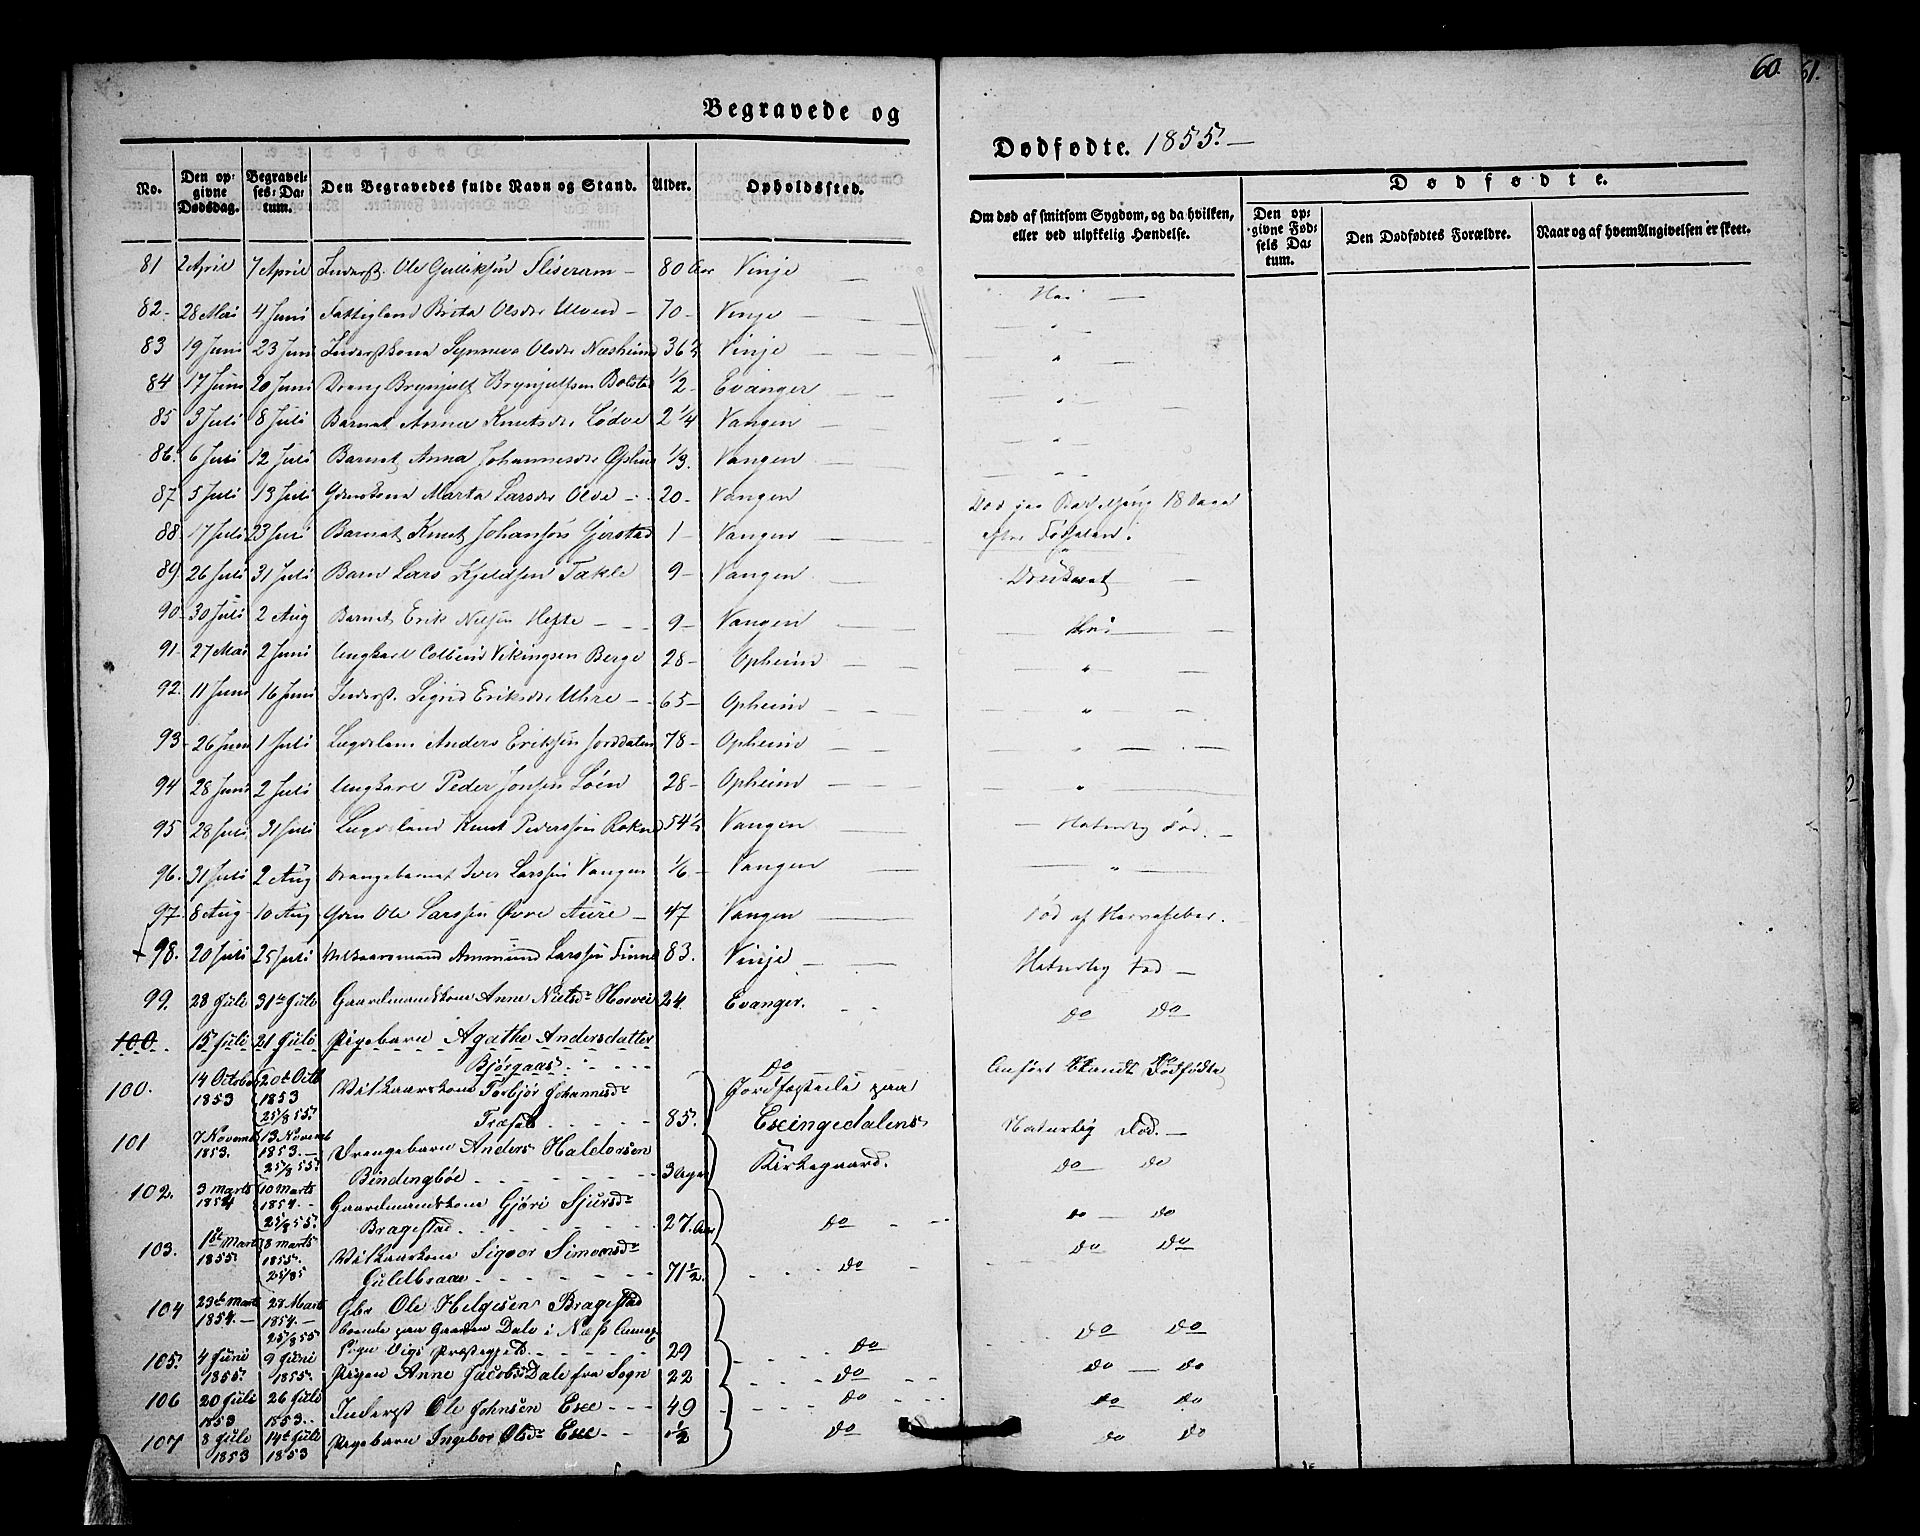 60. 61.
Begravede og
Dødfødte. 1855. —
No. | Den opgivne Dødsdag. | Begravelses-Datum. | Den Begravedes fulde Navn og Stand. | Alder. | Opholdssted. | Om død af smitsom Sygdom, og da hvilken, eller ved ulykkelig Hændelse. | Dødfødte.
Den opgivne Fødsels Datum. | Den Dødfødtes Forældre. | Naar og af hvem Angivelsen er skeet.
81 2 April 7 April Inderst. Ole Gulliksen — 80 Aar Vinje — Nei —
82- 28 Mai 4 Juni Fattiglem Brita Olsdr Ulvund — 70 — Vinje — "
83 19 Juni 23 Juni Inderstkona Synneva Olsdr Næsheim 36 ½ Vinje — "
84 17 Juni 20 Juni Dreng Brynjulf Brynjulfsen Bolstad ½ - Evanger — "
85 3 Juli 8 Juli Barnet Anna Knutsdr Lødve 2 ¼ Vangen — "
86. 6 Juli 12 Juli Barnet Anna Johannesdr Ophus ⅓. Vangen — "
87 5 Juli 13 Juli Gdmskona Marta Larsdr Olde - 20 - Vangen Død paa Barselseng 18 Dage
88 17 Juli 23 Juli Barnet Knut Johansen Gjerstad 1 — Vangen — efter Fødselen.
89) 26 Juli 31 Juli Barn Lars Kjeldsen Takle 9 — Vangen — Druknet —
90 30 Juli 2 Aug Barnet Erik Nilsen Hefte — 9 — Vangen — Nei —
91 27 Mai 2 Juni Ungkarl Colbein Vikingsen Berge 28 — Opheim — "
92 11 Juni 16 Juni Inderst. Sigrid Eriksdr Uhre — 65 — Opheim — "
93 26 Juni 1 Juli Lægdslem Anders Eriksen Jorddalen 78 — Opheim — "
94 28 Juni 2 Juli Ungkarl Peder Jonsen Løen 28 — Opheim — "
95 28 Juli 31 Juli Lægdslem Knut Pedersen Rokne 54 ½ Vangen — Naturlig Død. —
96. 31 Juli 2 Aug Drengebarnet Iver Larssen Vangen ⅙ - Vangen — "
97. 8 Aug 10 Aug Gdm Ole Larssen Øvre Aure — 47 Vangen — Død af Nervefeber.
+ 98. 20 Juli 25 Juli Vilkaarsmand Ammund Larssen Finne 83. Vinje — Naturlig Død —
99. 28 Juli 31te Juli Gaardmandskone Anne Nielsdr 24. Evanger. Do Do
100. 15 Juli 21 Juli Pigebarn Agathe Andersdatter
Bjørgaas. Do Anført blandt Dødfødte
100. 14 October 1853 20de Octb 1853 25/8 55. Vilkaarskone Torbjør Johannesdr
Træfald 85. Jordfæstede paa
Exingedalens Naturlig Død. —
101 7 Novemb 1853. 13 Novemb 1853. — 25/8 55. Drengebarn Anders Haldorsen
Bindingbøe 3 Uger Kirkegaard. Do Do
102. 3 Marts 1854 10 Marts 1854. — 25/8 55. Gaardmandskone Gjøri Sjursdr
Bragestad 27. Aar Do Do — Do
103. 1ste Marts 1855. 8 Marts 1855. 25/8 5 Vilkaarskone Sigvor Simonsdr
Guldbraae 71 ½. Do Do Do
104 23de Marts 1854. — 28 Marts 1854. — 25/8 55 Gbr Ole Helgesen Bragestad
boende paa Gaarden Dale i Næs Annex
Sogn Vigs Præstegjeld 29 Do Do Do
105. 4 Juni 1855. 9 Juni 1855. Pigen Anne Jacobsdr Dale fra Sogn 22 Do Do — Do
106 20 Juli 1853 26 Juli 1853. Inderst Ole Johnsen Exe 49 Do Do Do
107 8 Juli 1853 14de Juli 1853 Pigebarn Ingebor Olsdr Exe — ½ Do Do Do